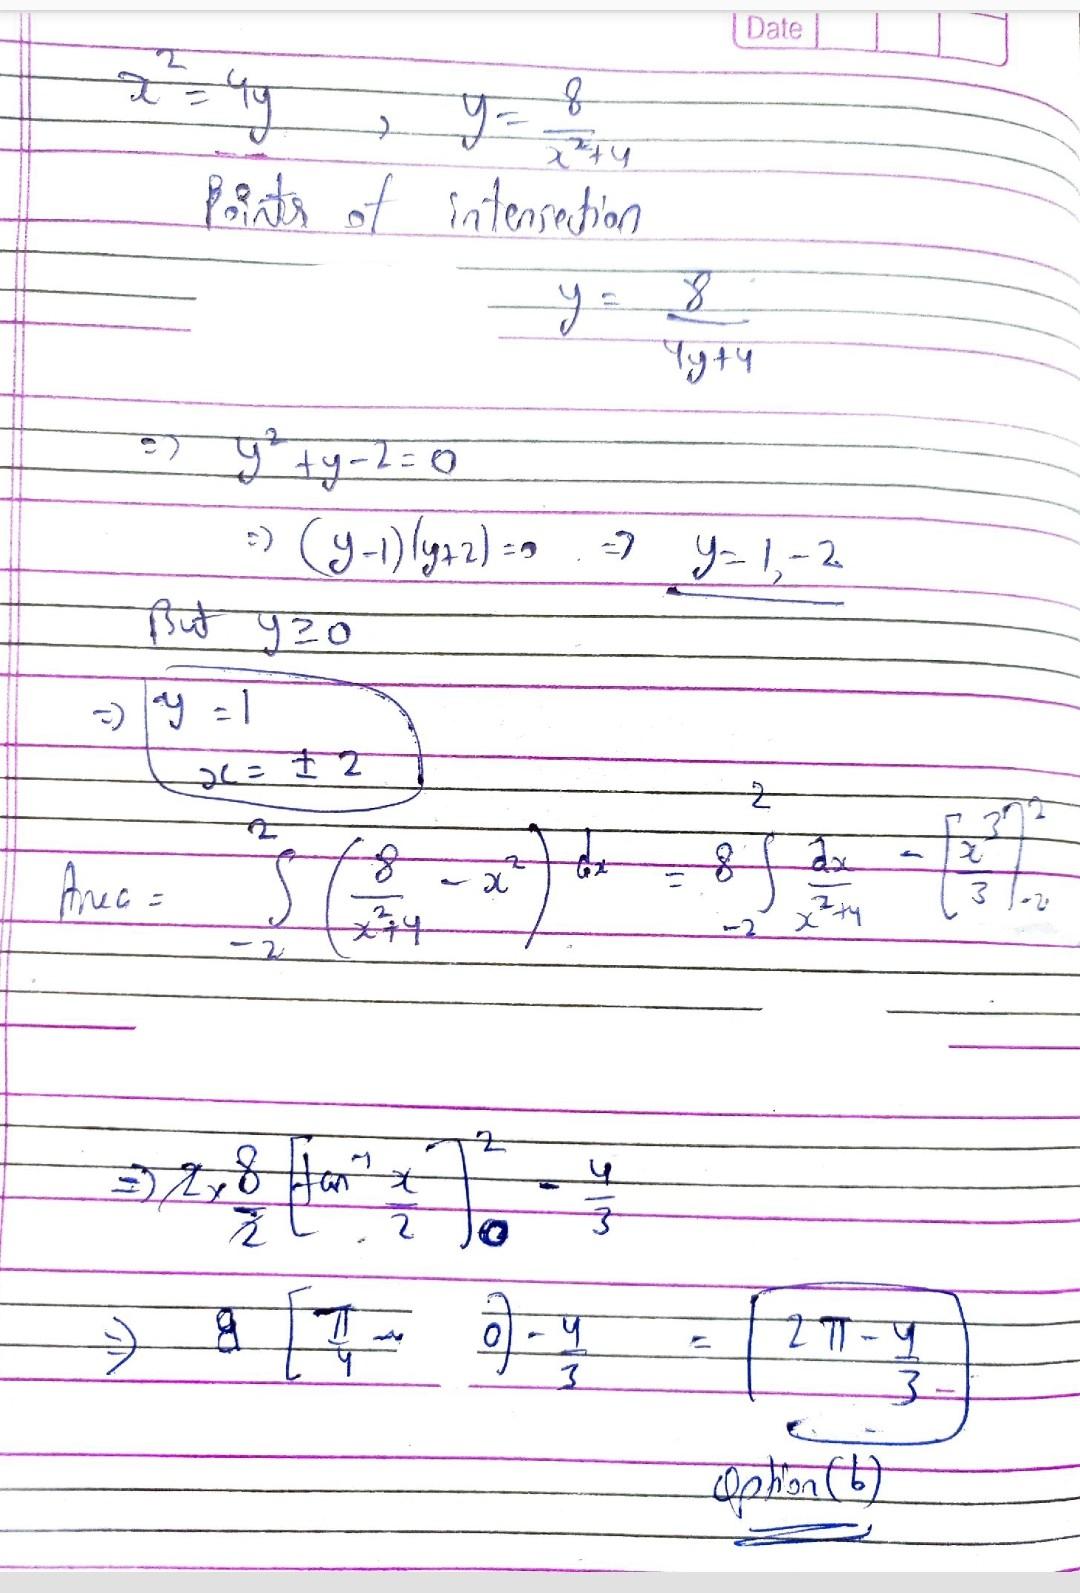 Date
x² = 4y , y = 8/(x²+4)
Points of intersection
y = 8/(4y+4)
=> y² + y - 2 = 0
=> (y-1)(y+2) = 0 => y = 1, -2
But y ≥ 0
=> y = 1
x = ± 2
Area = ∫_{-2}^{2} (8/(x²+4) - x²) dx = 8 ∫_{-2}^{2} dx/(x²+4) - [x³/3]_{-2}^{2}
=> 2 × 8/2 [tan⁻¹ x/2]_{0}^{2} - 4/3
=> 8 [π/4 - 0] - 4/3 = 2π - 4/3
option (b)